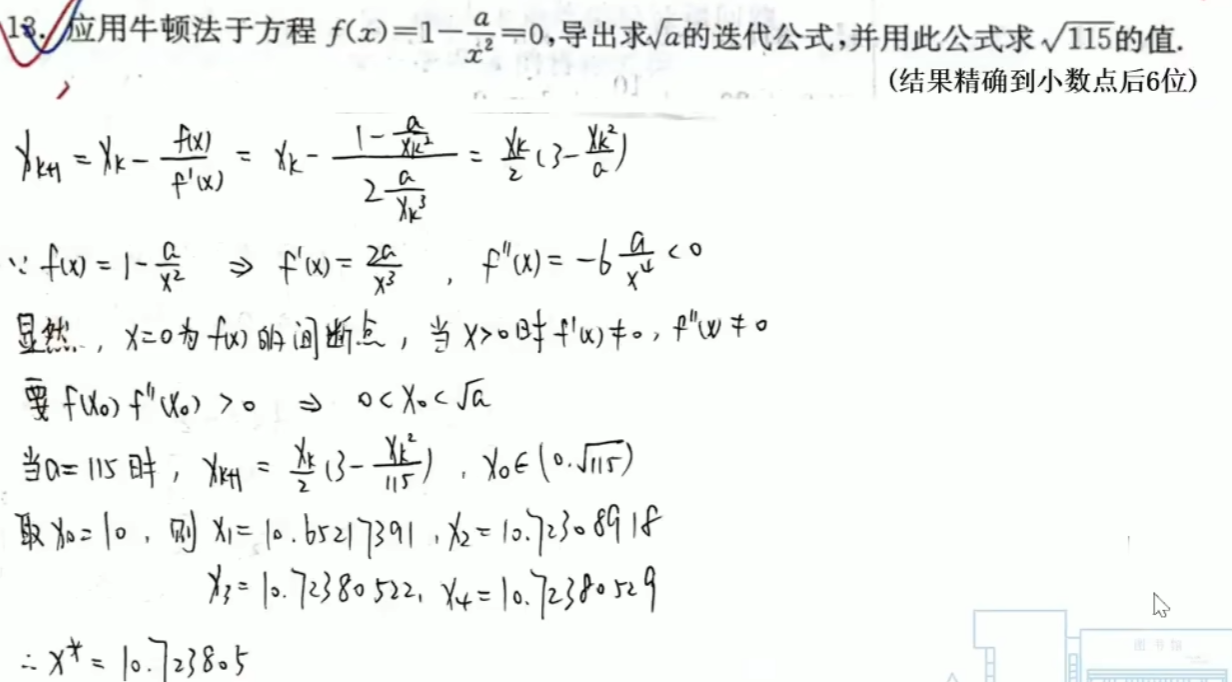 13. 应用牛顿法于方程 f(x)=1-a/x²=0,导出求√a的迭代公式,并用此公式求√115的值.
(结果精确到小数点后6位)
x_{k+1} = x_k - f(x)/f'(x) = x_k - (1 - a/x_k²)/(2 a/x_k³) = x_k/2 (3 - x_k²/a)
∵ f(x) = 1 - a/x² ⇒ f'(x) = 2a/x³ , f''(x) = -6 a/x⁴ < 0
显然, x=0为f(x)的间断点, 当x>0时f'(x)≠0, f''(x)≠0
要 f(x₀) f''(x₀) > 0 ⇒ 0 < x₀ < √a
当a=115时, x_{k+1} = x_k/2 (3 - x_k²/115) , x₀∈(0.√115)
取x₀=10, 则 x₁=10.65217391, x₂=10.72308918
x₃=10.72380522, x₄=10.72380529
∴ x* = 10.723805
图书馆